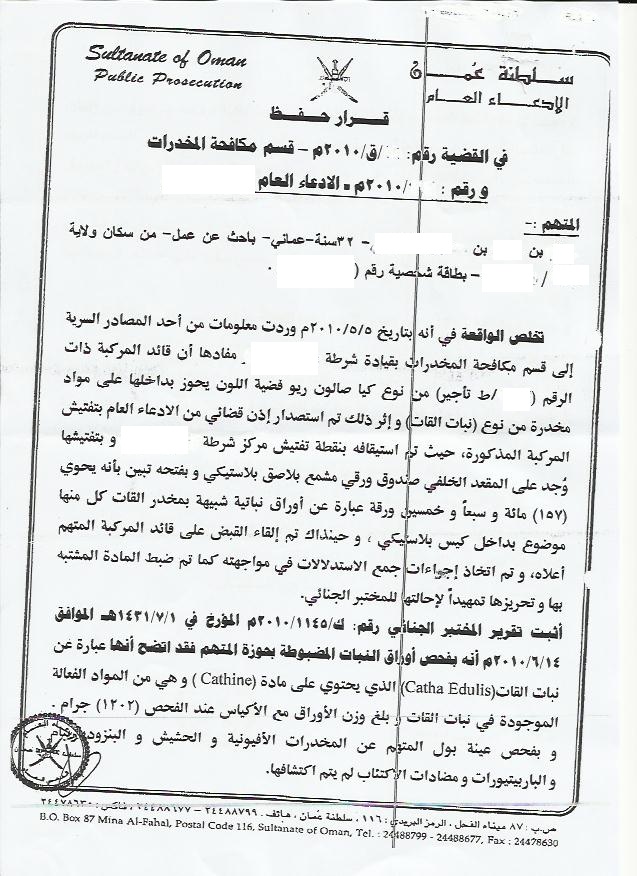 Sultanate of Oman
Public Prosecution
سلطنة عُمان
الإدعاء العام
قرار حفظ
في القضية رقم: /ق/٢٠١٠م – قسم مكافحة المخدرات
و رقم : /٢٠١٠م – الادعاء العام
المتهم :-
بن بن – ٣٢سنة-عماني- باحث عن عمل- من سكان ولاية
/ – بطاقة شخصية رقم (
تخلص الواقعة في أنه بتاريخ ٢٠١٠/٥/٥م وردت معلومات من أحد المصادر السرية
إلى قسم مكافحة المخدرات بقيادة شرطة مفادها أن قائد المركبة ذات
الرقم ( /ط تأجير) من نوع كيا صالون ريو فضية اللون يحوز بداخلها على مواد
مخدرة من نوع (نبات القات) و إثر ذلك تم استصدار إذن قضائي من الادعاء العام بتفتيش
المركبة المذكورة، حيث تم استيقافه بنقطة تفتيش مركز شرطة و بتفتيشها
وُجد على المقعد الخلفي صندوق ورقي مشمع بلاصق بلاستيكي و بفتحه تبين بأنه يحوي
(١٥٧) مائة و سبعاً و خمسين ورقة عبارة عن أوراق نباتية شبيهة بمخدر القات كل منها
موضوع بداخل كيس بلاستيكي ، و حينذاك تم إلقاء القبض على قائد المركبة المتهم
أعلاه، و تم اتخاذ إجراءات جمع الاستدلالات في مواجهته كما تم ضبط المادة المشتبه
بها و تحريزها تمهيداً لإحالتها للمختبر الجنائي.
أثبت تقرير المختبر الجنائي رقم: ك/٢٠١٠/١١٤٥م المؤرخ في ١٤٣١/٧/١هـ الموافق
٢٠١٠/٦/١٤م أنه بفحص أوراق النبات المضبوطة بحوزة المتهم فقد اتضح أنها عبارة عن
نبات القات(Catha Edulis) الذي يحتوي على مادة (Cathine) و هي من المواد الفعالة
الموجودة في نبات القات و بلغ وزن الأوراق مع الأكياس عند الفحص (١٢٠٢) جرام .
و بفحص عينة بول المتهم عن المخدرات الأفيونية و الحشيش و
و الباربيتيورات و مضادات الاكتئاب لم يتم اكتشافها.
ص.ب: ٨٧ ميناء الفحل ، الرمز البريدي: ١١٦ ، سلطنة عُمان ، هاتف : ٢٤٤٨٨٧٩٩ - ٢٤٤٨٨٦٧٧ ، فاكس : ٢٤٤٧٨٦٣٠
B.O. Box 87 Mina Al-Fahal, Postal Code 116, Sultanate of Oman, Tel. : 24488799 - 24488677, Fax : 24478630